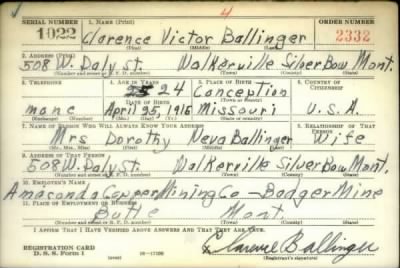 4
SERIAL NUMBER 1. NAME (Print) ORDER NUMBER
1022 Clarence Victor Ballinger 2332
(First) (Middle) (Last)
2. ADDRESS (Print)
508 W. Daly st. Walkerville Silver Bow Mont.
(Number and street or R. F. D. number) (Town) (County) (State)
3. TELEPHONE 4. AGE IN YEARS 5. PLACE OF BIRTH 6. COUNTRY OF CITIZENSHIP
24 Conception
DATE OF BIRTH (Town or county)
none April 25, 1916 Missouri U.S.A.
(Exchange) (Number) (Mo.) (Day) (Yr.) (State or country)
7. NAME OF PERSON WHO WILL ALWAYS KNOW YOUR ADDRESS 8. RELATIONSHIP OF THAT PERSON
Mrs Dorothy Neva Ballinger Wife
(Mr., Mrs., Miss) (First) (Middle) (Last)
9. ADDRESS OF THAT PERSON
508 W. Daly st. Walkerville Silver Bow Mont.
(Number and street or R. F. D. number) (Town) (County) (State)
10. EMPLOYER'S NAME
Anaconda Copper Mining Co — Badger Mine
11. PLACE OF EMPLOYMENT OR BUSINESS
Butte Mont.
(Number and street or R. F. D. number) (Town) (County) (State)
I AFFIRM THAT I HAVE VERIFIED ABOVE ANSWERS AND THAT THEY ARE TRUE.
REGISTRATION CARD Clarence Ballinger
D. S. S. Form 1 (Registrant's signature)